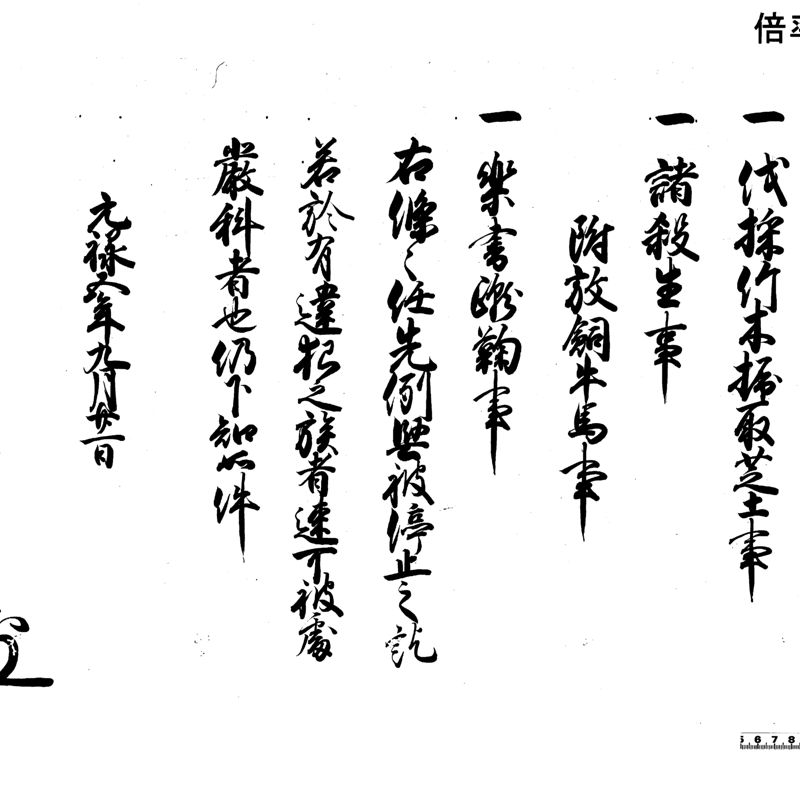 倍率
一 伐採竹木掘取芝土事
一 諸殺生事
附放飼牛馬事
一 楽書蹴鞠事
右條々任先例堅被停止之訖
若於有違犯之族者速可被處
嚴科者也仍下知如件
元禄五年九月廿一日
5 6 7 8